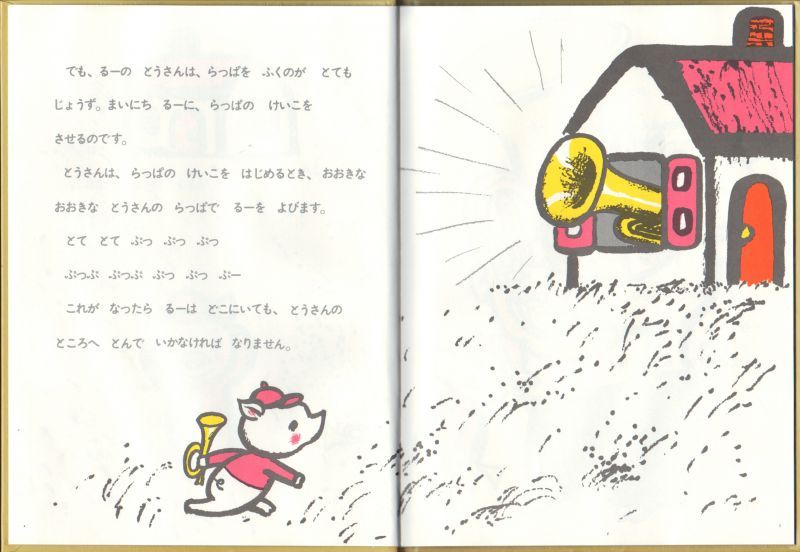 でも、るーの　とうさんは、らっぱを　ふくのが　とても
じょうず。まいにち　るーに、らっぱの　けいこを
させるのです。
とうさんは、らっぱの　けいこを　はじめるとき、おおきな
おおきな　とうさんの　らっぱで　るーを　よびます。
とて　とて　ぷっ　ぷっ　ぷっ
ぷっぷ　ぷっぷ　ぷっ　ぷっ　ぷー
これが　なったら　るーは　どこにいても、とうさんの
ところへ　とんで　いかなければ　なりません。